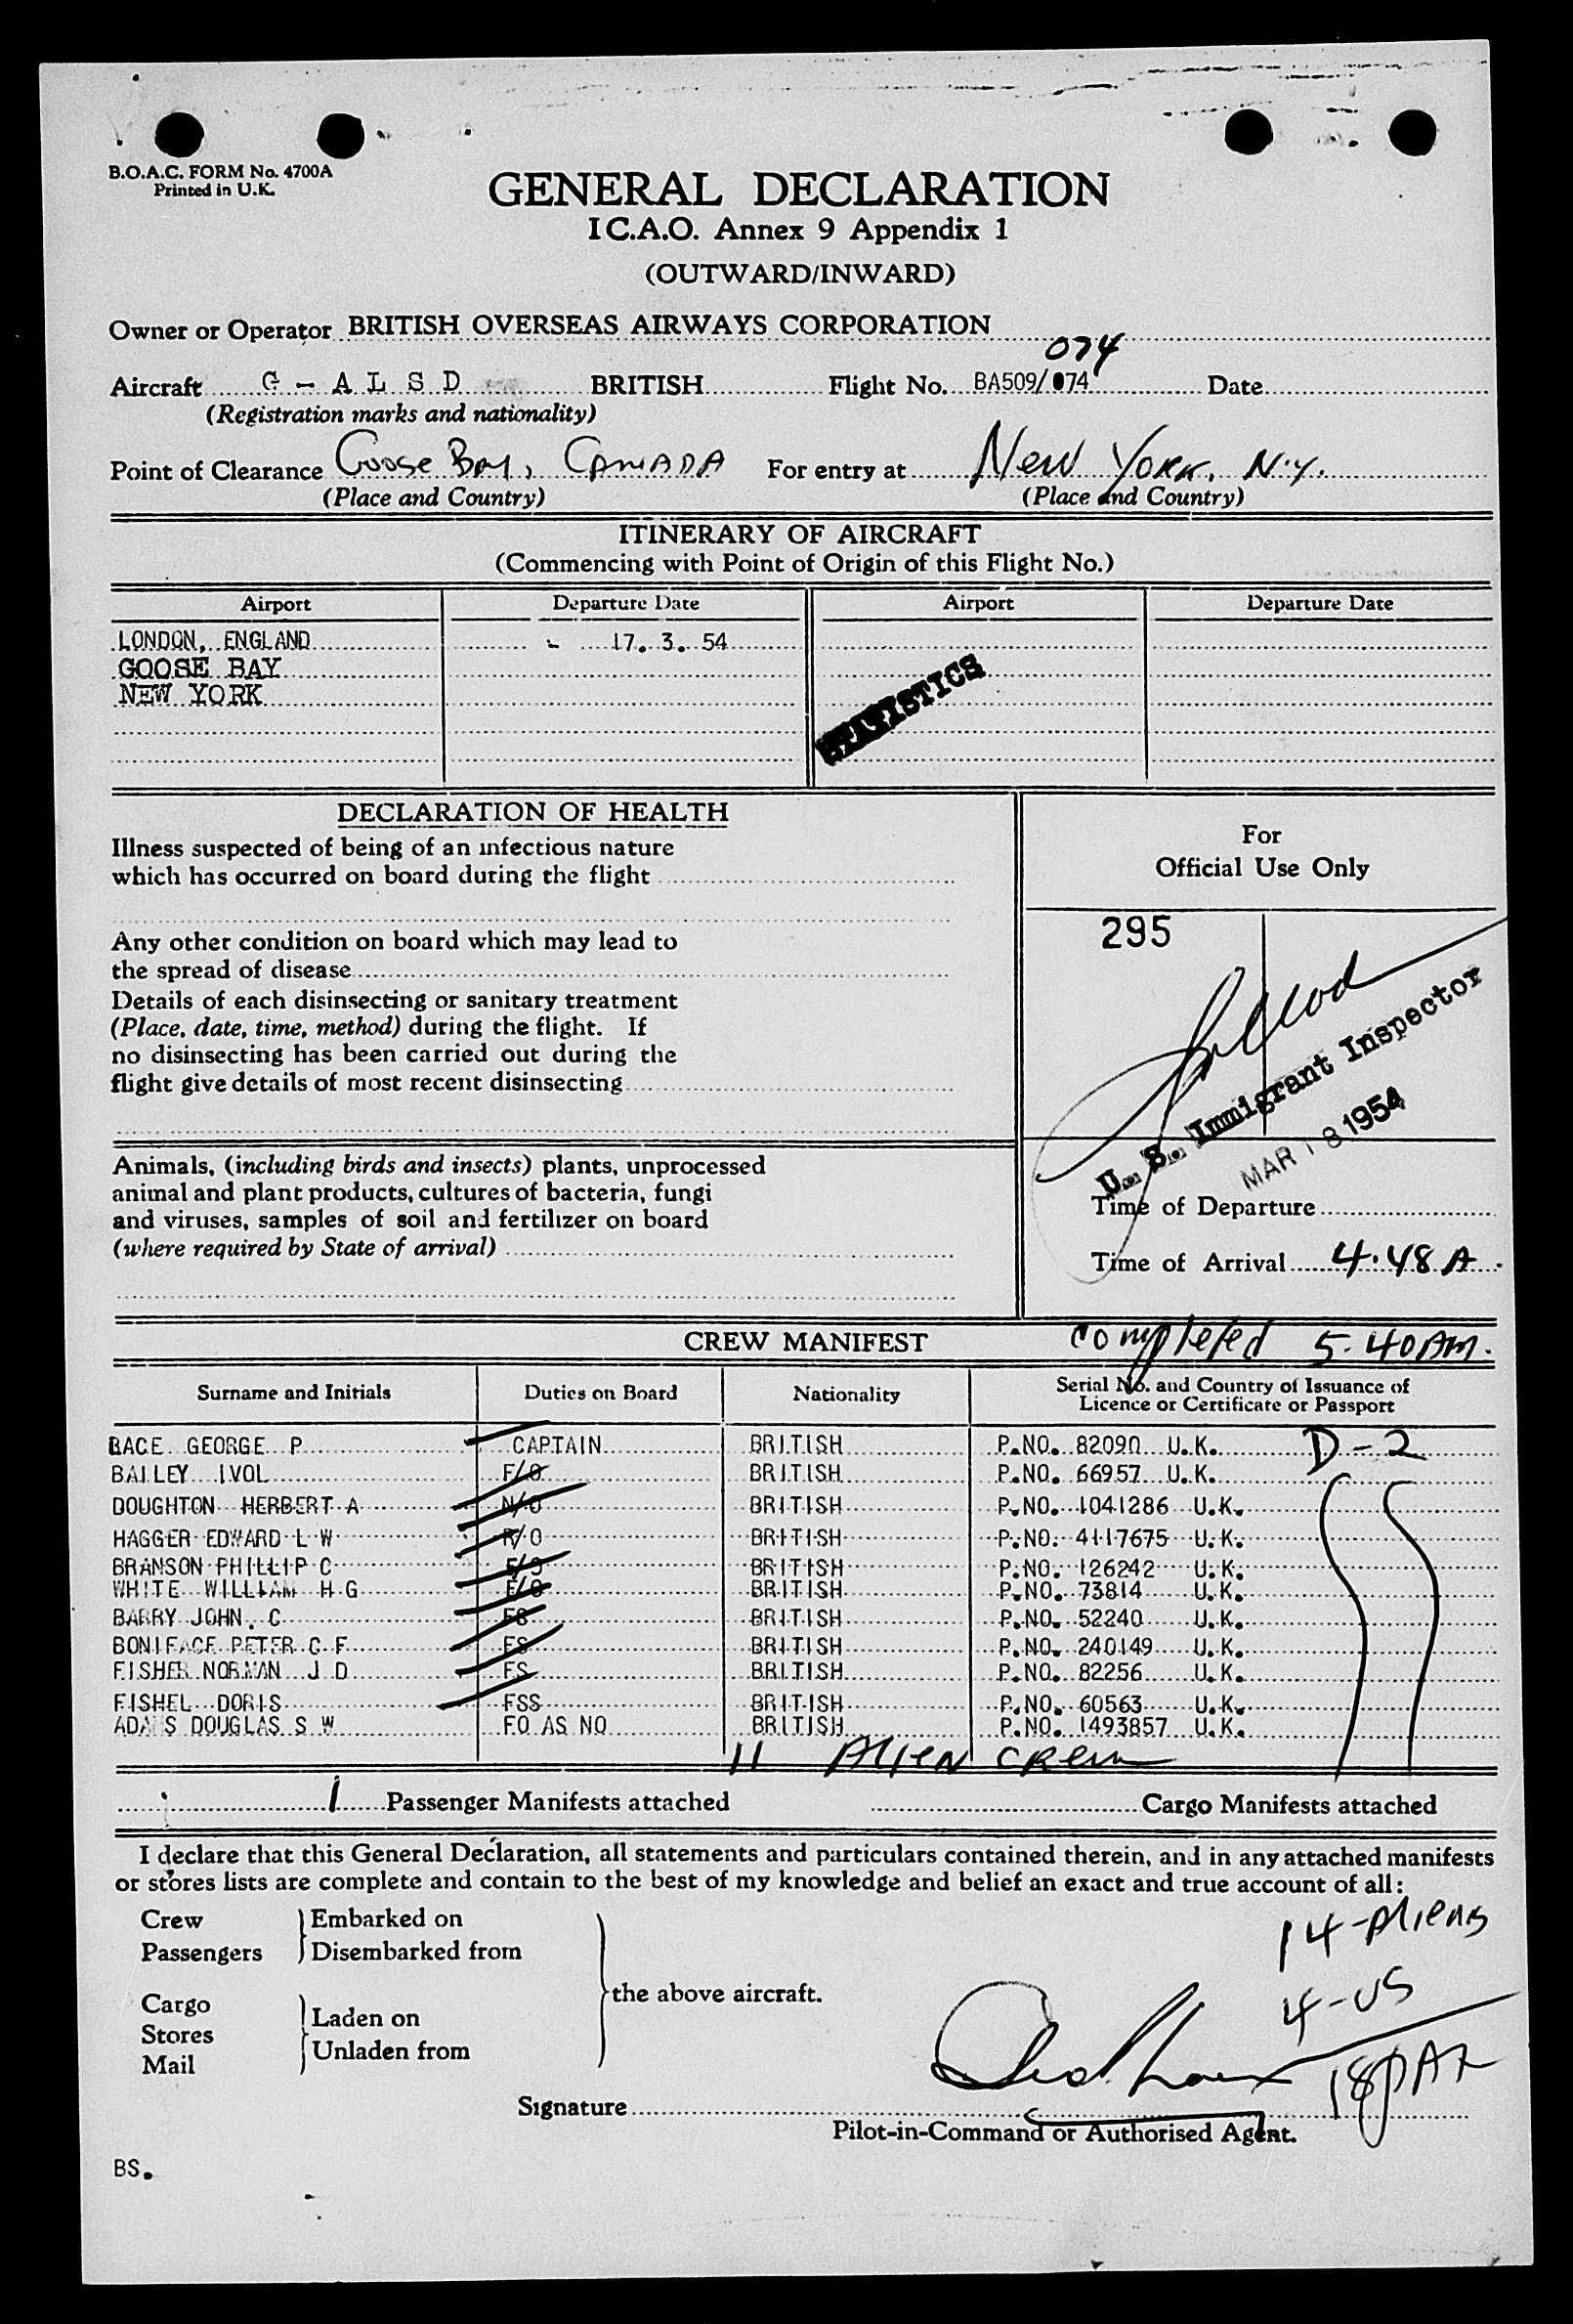 B.O.A.C. FORM No. 4700A
Printed in U.K.
GENERAL DECLARATION
I.C.A.O. Annex 9 Appendix 1
(OUTWARD/INWARD)
Owner or Operator BRITISH OVERSEAS AIRWAYS CORPORATION
074
Aircraft G - A L S D BRITISH Flight No. BA509/074 Date
(Registration marks and nationality)
Point of Clearance Goose Bay, CANADA For entry at New York, N.Y.
(Place and Country) (Place and Country)
ITINERARY OF AIRCRAFT
(Commencing with Point of Origin of this Flight No.)
Airport Departure Date Airport Departure Date
LONDON, ENGLAND - 17. 3. 54
GOOSE BAY
NEW YORK
STATISTICS
DECLARATION OF HEALTH
Illness suspected of being of an infectious nature
which has occurred on board during the flight
Any other condition on board which may lead to
the spread of disease
Details of each disinsecting or sanitary treatment
(Place, date, time, method) during the flight. If
no disinsecting has been carried out during the
flight give details of most recent disinsecting
Animals, (including birds and insects) plants, unprocessed
animal and plant products, cultures of bacteria, fungi
and viruses, samples of soil and fertilizer on board
(where required by State of arrival)
For
Official Use Only
295
U. S. Immigrant Inspector
MAR 18 1954
Time of Departure
Time of Arrival 4.48 A
CREW MANIFEST completed 5.40 AM.
Surname and Initials Duties on Board Nationality Serial No. and Country of Issuance of
Licence or Certificate or Passport
LACE GEORGE P CAPTAIN BRITISH P.NO. 82090 U.K. D-2
BAILEY IVOL F/O BRITISH P.NO. 66957 U.K.
DOUGHTON HERBERT A N/O BRITISH P.NO. 1041286 U.K.
HAGGER EDWARD L W R/O BRITISH P.NO. 4117675 U.K.
BRANSON PHILLIP C E/O BRITISH P.NO. 126242 U.K.
WHITE WILLIAM H G E/O BRITISH P.NO. 73814 U.K.
BARRY JOHN. C FS BRITISH P.NO. 52240 U.K.
BONIFACE PETER C F FS BRITISH P.NO. 240149 U.K.
FISHER NORMAN J D FS BRITISH P.NO. 82256 U.K.
FISHEL DORIS FSS BRITISH P.NO. 60563 U.K.
ADAMS DOUGLAS S W FO AS NO BRITISH P.NO. 1493857 U.K.
11 Alien Crew
1 Passenger Manifests attached Cargo Manifests attached
I declare that this General Declaration, all statements and particulars contained therein, and in any attached manifests
or stores lists are complete and contain to the best of my knowledge and belief an exact and true account of all:
Crew Embarked on
Passengers Disembarked from
Cargo
Stores Laden on
Mail Unladen from
the above aircraft.
14-Aliens
4-US
18
Signature
Pilot-in-Command or Authorised Agent.
BS.